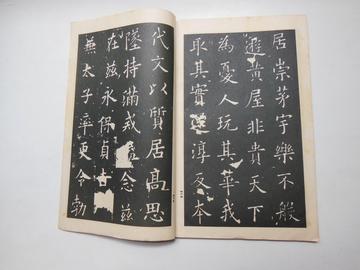 居崇茅宇樂不般
遊黃屋非貴天下
為憂人玩其華我
取其實還淳反本
代文以質居高思
墜持滿戒溢念茲
在茲永保貞吉
兼太子率更令勃